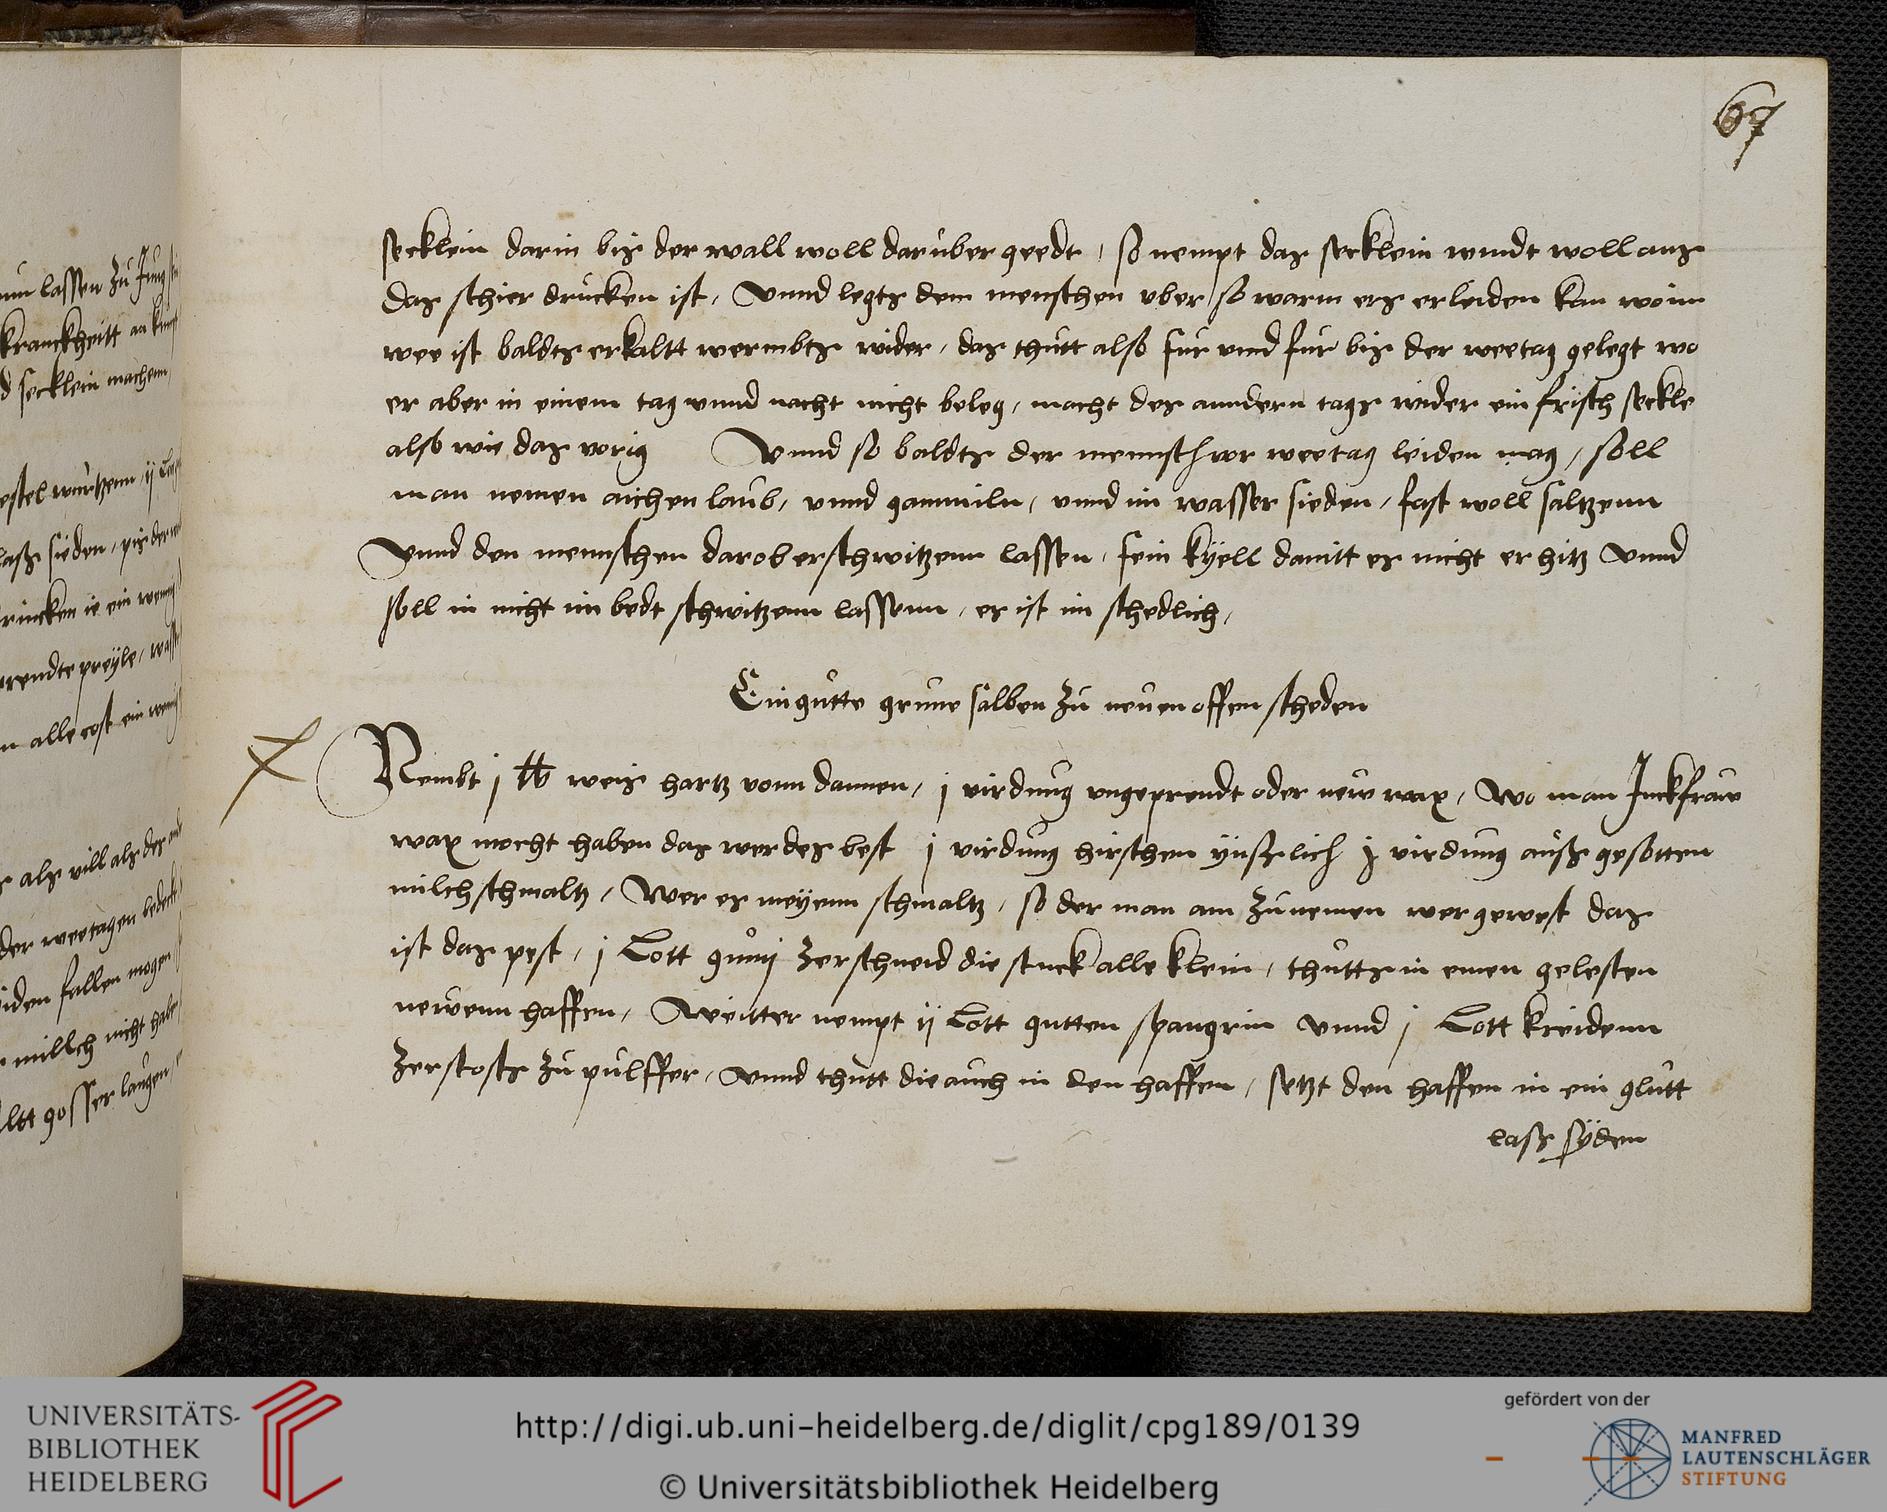 67
secklein darin bis der wall woll daruber geedt, so nempt das secklein wundt woll aus
das schier drucken ist, Vnnd legts dem menschen vber so warm ers erleiden kan wo im
wee ist baldts erkaltt wermbts wider, das thutt also fur vnnd fur bis der weetag gelegt wo
er aber in einem tag vnnd nacht nicht beleg, macht des anndern tags wider ein frisch seckle
also wie das vorig Vnnd so baldts der mennsch vor weetag leiden mag, soll
man nemen aichen laub, vnnd gamiln, vnnd im wasser sieden, fast woll saltzenn
Vnnd den mennschen darob erschwitzenn lassen, fein kÿell damitt es nicht er hitz Vnnd
soll in nicht im bedt schwitzenn lassenn, es ist im schedlich,
Ein gutte grune salben zu neuen offen scheden
Nembt j ℔ weis hartz vonn dannen, j virdung vngeprendt oder new wax, Wo man Junckfraw
wax mocht haben das wer des best j virdung hirschen ÿnszlich j virdung ausz gesotten
milchschmaltz, Wer es meÿenn schmaltz, so der man am zunemen wer gewest das
ist das pest, j Lott gumj zerschneid die stuck alle klein, thutts in einen gelesten
newenn haffen, Weitter nempt ij Lott gutten spangrin Vnnd j Lott kreidenn
zerstosts zu pulffer, Vnnd thutt die auch in den haffen, setzt den haffen in ein glutt
lasz sÿden
UNIVERSITÄTS-
BIBLIOTHEK
HEIDELBERG
http://digi.ub.uni-heidelberg.de/diglit/cpg189/0139
© Universitätsbibliothek Heidelberg
gefördert von der
MANFRED
LAUTENSCHLÄGER
STIFTUNG